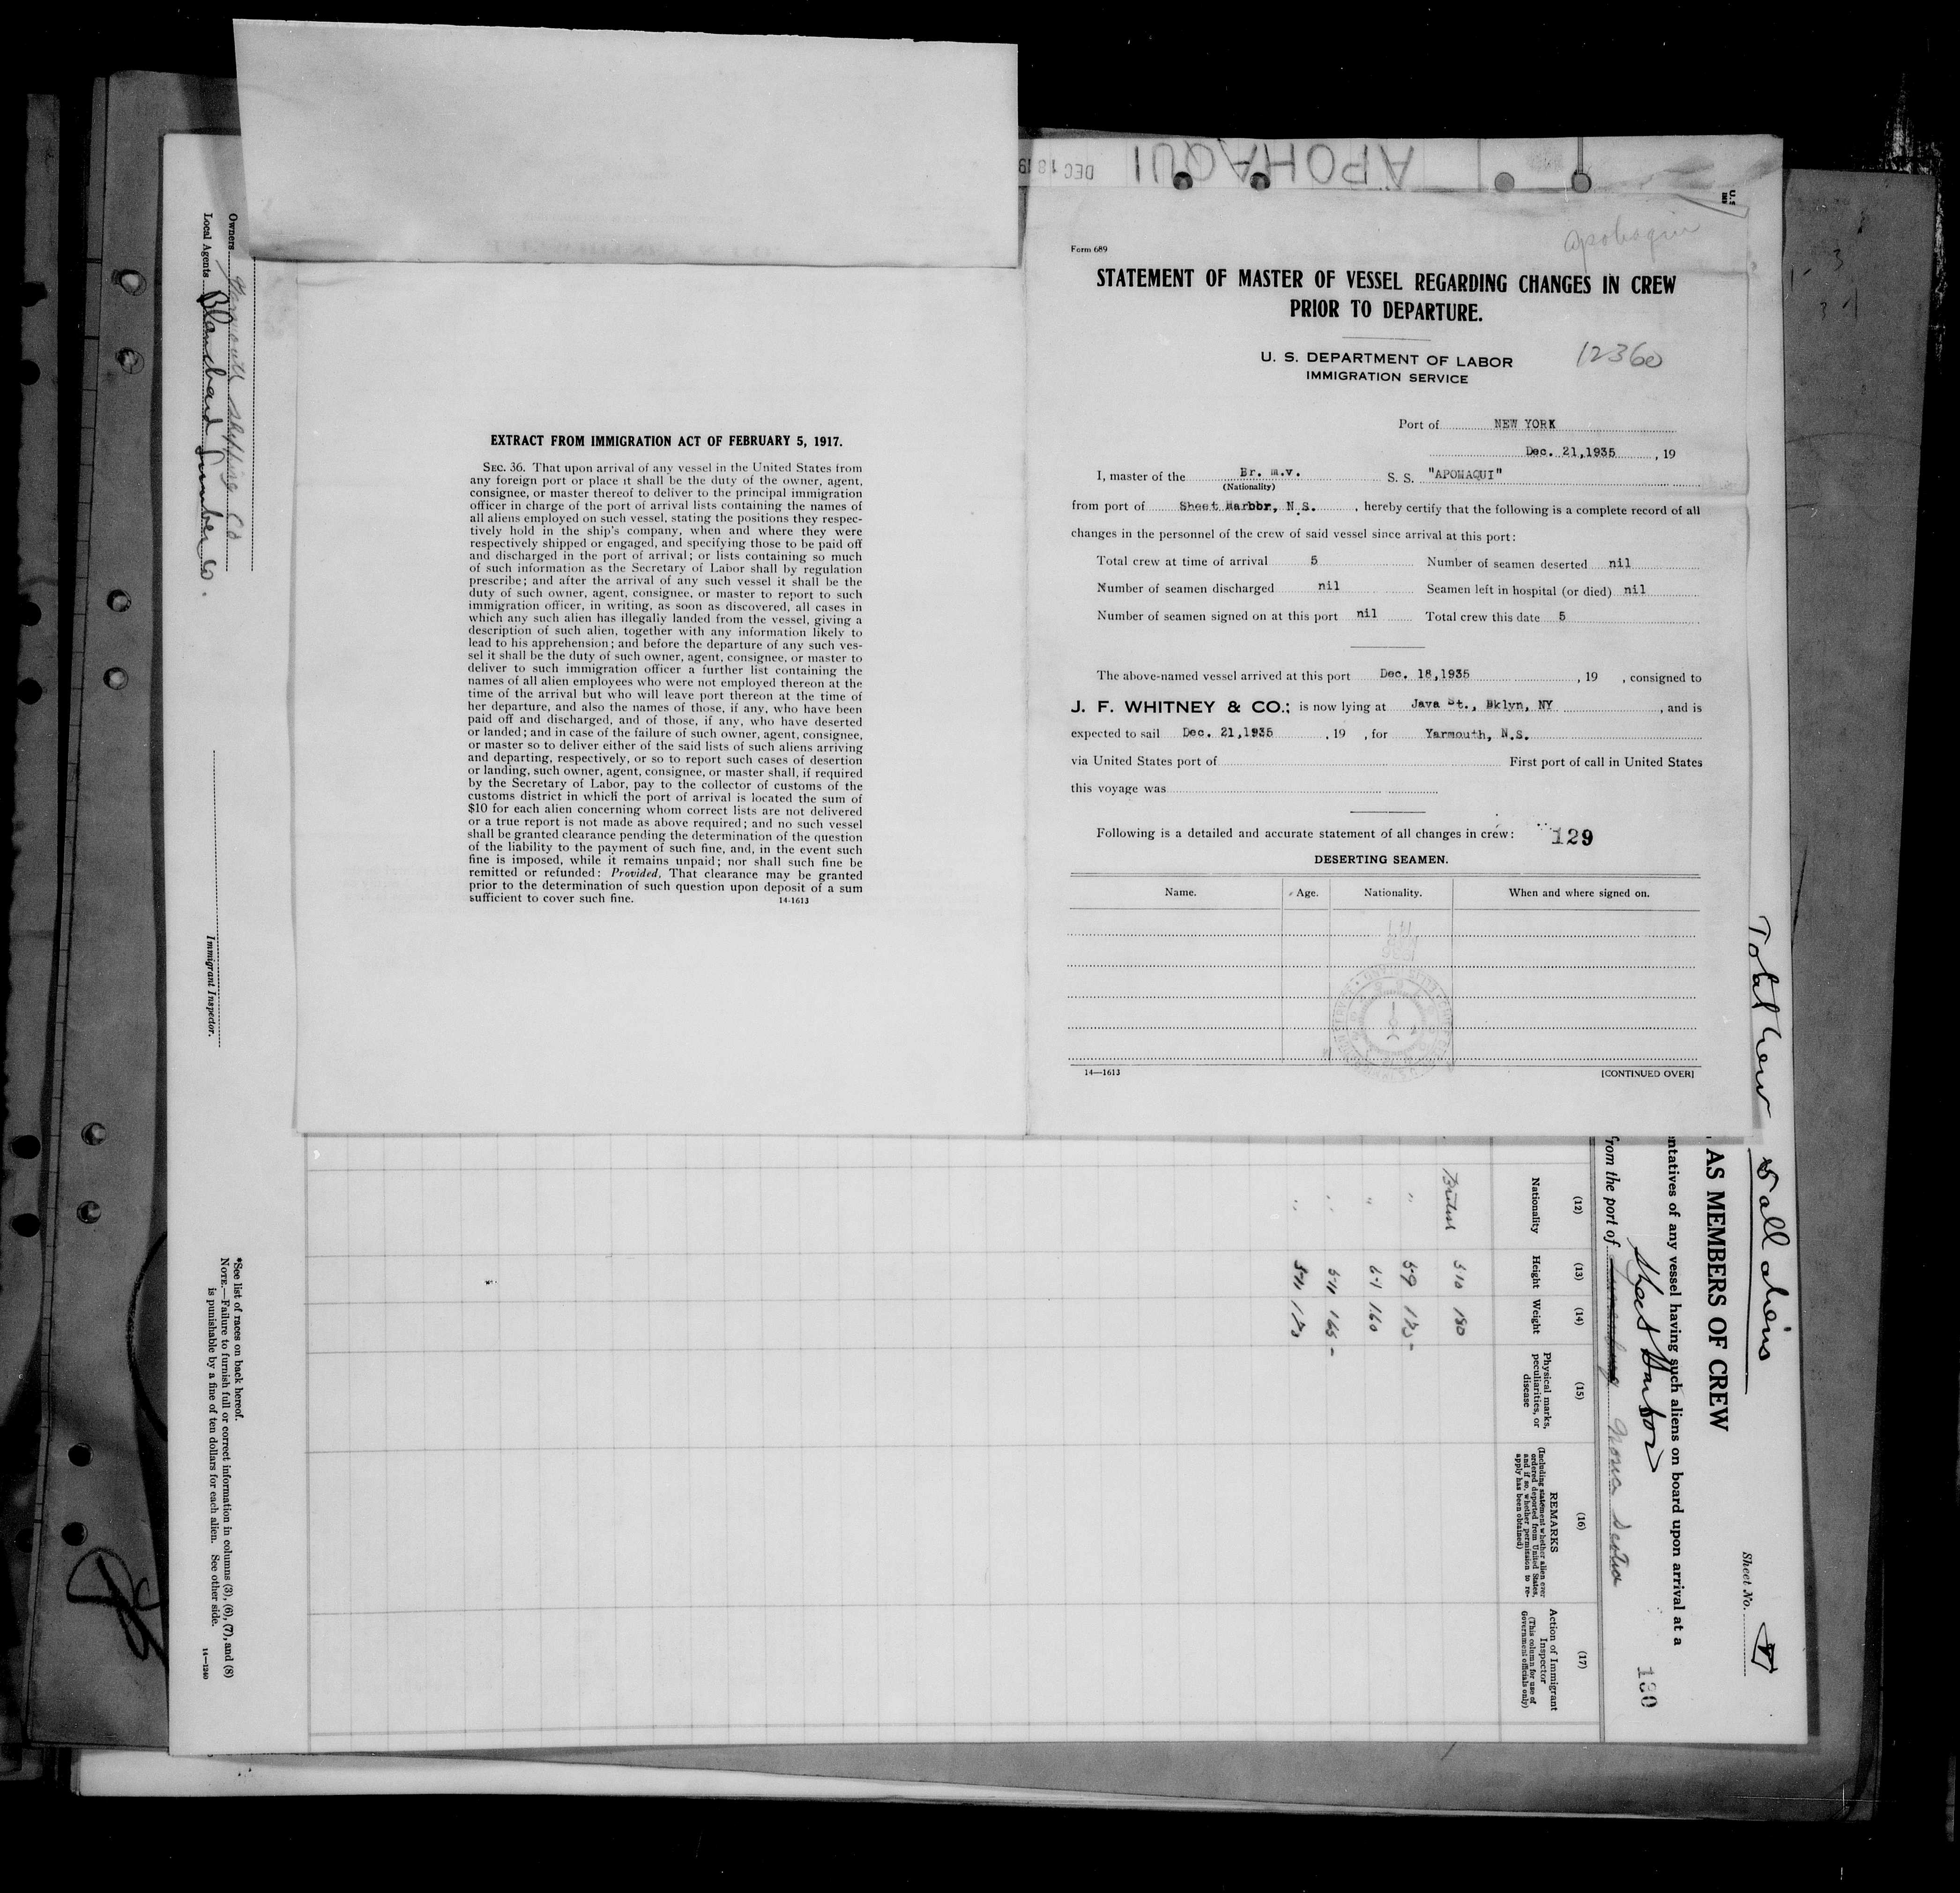 APOHAQUI
DEC 18 19
Apohaqui
Form 689
STATEMENT OF MASTER OF VESSEL REGARDING CHANGES IN CREW
PRIOR TO DEPARTURE.
U. S. DEPARTMENT OF LABOR
IMMIGRATION SERVICE
12360
Port of NEW YORK
Dec. 21,1935, 19
I, master of the Br. m.v. S. S. "APOHAQUI"
(Nationality)
from port of Sheet Harbor, N.S. , hereby certify that the following is a complete record of all
changes in the personnel of the crew of said vessel since arrival at this port:
Total crew at time of arrival 5 Number of seamen deserted nil
Number of seamen discharged nil Seamen left in hospital (or died) nil
Number of seamen signed on at this port nil Total crew this date 5
The above-named vessel arrived at this port Dec. 18,1935 , 19 , consigned to
J. F. WHITNEY & CO.; is now lying at Java St., Bklyn, NY , and is
expected to sail Dec. 21,1935 , 19 , for Yarmouth, N.S.
via United States port of First port of call in United States
this voyage was
Following is a detailed and accurate statement of all changes in crew:
129
DESERTING SEAMEN.
Name. Age. Nationality. When and where signed on.
14—1613 [CONTINUED OVER]
EXTRACT FROM IMMIGRATION ACT OF FEBRUARY 5, 1917.
SEC. 36. That upon arrival of any vessel in the United States from
any foreign port or place it shall be the duty of the owner, agent,
consignee, or master thereof to deliver to the principal immigration
officer in charge of the port of arrival lists containing the names of
all aliens employed on such vessel, stating the positions they respec-
tively hold in the ship's company, when and where they were
respectively shipped or engaged, and specifying those to be paid off
and discharged in the port of arrival; or lists containing so much
of such information as the Secretary of Labor shall by regulation
prescribe; and after the arrival of any such vessel it shall be the
duty of such owner, agent, consignee, or master to report to such
immigration officer, in writing, as soon as discovered, all cases in
which any such alien has illegally landed from the vessel, giving a
description of such alien, together with any information likely to
lead to his apprehension; and before the departure of any such ves-
sel it shall be the duty of such owner, agent, consignee, or master to
deliver to such immigration officer a further list containing the
names of all alien employees who were not employed thereon at the
time of the arrival but who will leave port thereon at the time of
her departure, and also the names of those, if any, who have been
paid off and discharged, and of those, if any, who have deserted
or landed; and in case of the failure of such owner, agent, consignee,
or master so to deliver either of the said lists of such aliens arriving
and departing, respectively, or so to report such cases of desertion
or landing, such owner, agent, consignee, or master shall, if required
by the Secretary of Labor, pay to the collector of customs of the
customs district in which the port of arrival is located the sum of
$10 for each alien concerning whom correct lists are not delivered
or a true report is not made as above required; and no such vessel
shall be granted clearance pending the determination of the question
of the liability to the payment of such fine, and, in the event such
fine is imposed, while it remains unpaid; nor shall such fine be
remitted or refunded: Provided, That clearance may be granted
prior to the determination of such question upon deposit of a sum
sufficient to cover such fine.
14-1613
Total Crew 5 all aliens
Sheet No.
AS MEMBERS OF CREW
ntatives of any vessel having such aliens on board upon arrival at a
Sheet Harbor
from the port of Nova Scotia
130
(12) (13) (14) (15) (16) (17)
Nationality
Height
Weight
Physical marks,
peculiarities, or
disease
REMARKS
(Including statement whether alien ever
ordered deported from United States,
and if so, whether permission to re-
apply has been obtained)
Action of Immigrant
Inspector
(This column for use of
Government officials only)
British 5-10 180
" 5-9 175-
" 6-1 160
" 5-11 165-
" 5-11 170
Owners Yarmouth Shipping Co
Local Agents Blanchard Lumber Co.
Immigrant Inspector.
*See list of races on back hereof.
NOTE.—Failure to furnish full or correct information in columns (3), (6), (7), and (8)
is punishable by a fine of ten dollars for each alien. See other side.
14—1240